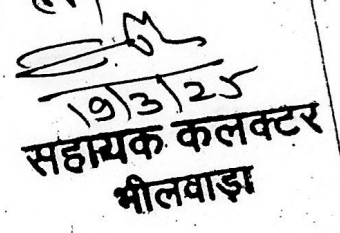 19/3/25
सहायक कलक्टर
भीलवाड़ा